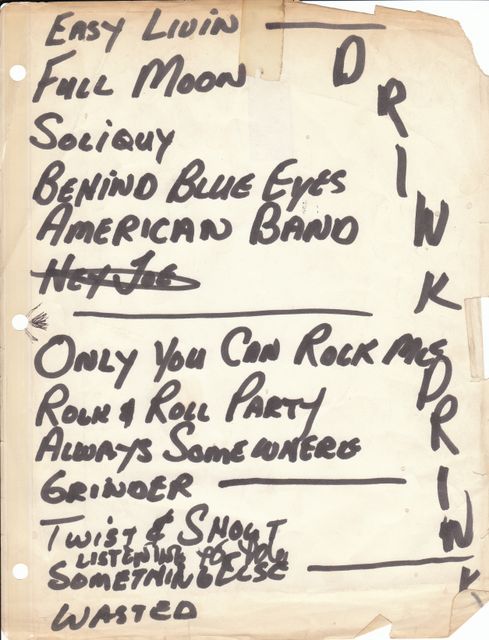 EASY LIVIN
FULL MOON
SOLIQUY
BEHIND BLUE EYES
AMERICAN BAND
HEY JOE
ONLY YOU CAN ROCK ME
ROCK & ROLL PARTY
ALWAYS SOMEWHERE
GRINDER
TWIST & SHOUT
LISTENING TO YOU
SOMETHING ELSE
WASTED
DRINK
DRINK